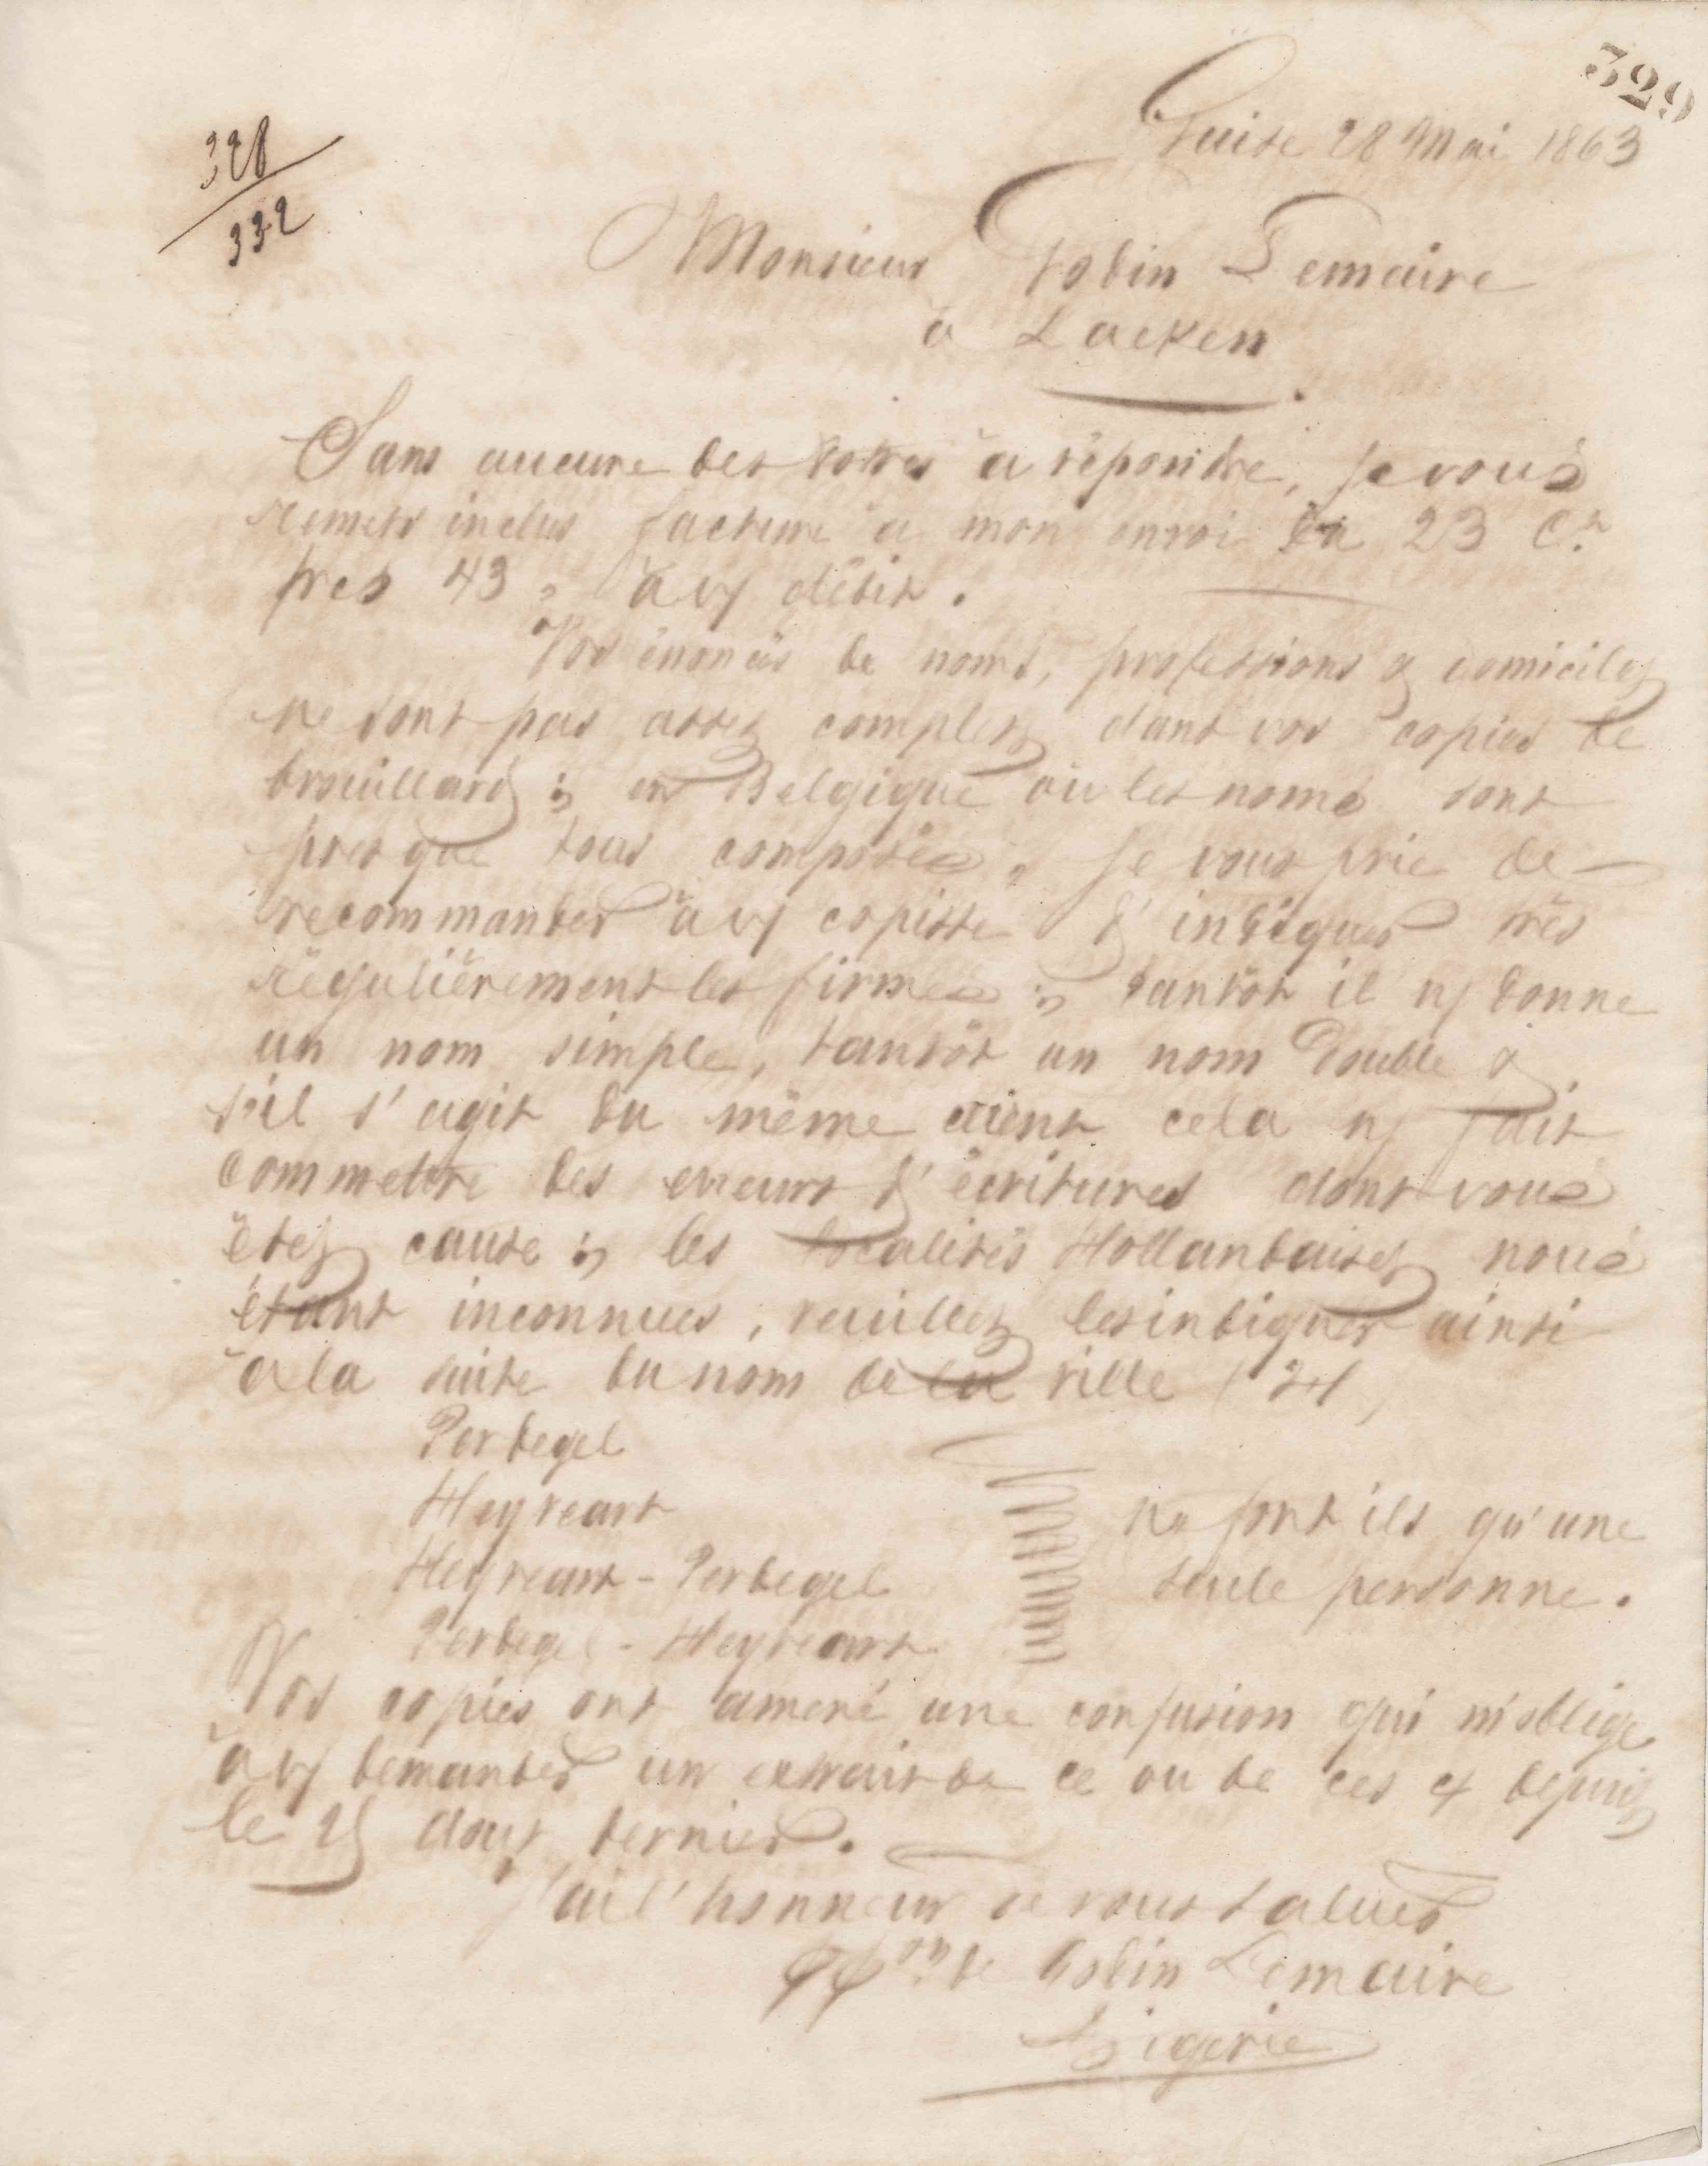 329
328
332
Guise 28 Mai 1863
Monsieur Godin Lemaire
à Laeken
Sans aucune des votres à répondre, je vous
remets inclus facture à mon envoi du 23 Ct
frcs 43 " à v/ débit.
Vos énoncés de noms, professions & domiciles
ne sont pas assez complets dans vos copies de
brouillard ; en Belgique où les noms sont
presque tous composés, je vous prie de
recommander à v/ copiste d'indiquer très
régulièrement les firmes ; tantôt il n/ donne
un nom simple, tantôt un nom double &
s'il s'agit du même client cela n/ fait
commettre des erreurs d'écritures dont vous
êtes cause ; les localités Hollandaises nous
étant inconnues, veuillez les indiquer ainsi
à la suite du nom de la ville (H)
Perdegel
Heyveart
Heyveart - Perdegel
Perdegel - Heyveart
ne font ils qu'une
seule personne.
Vos copies ont amené une confusion qui m'oblige
à v/ demander un extrait de ce ou de ces c/ depuis
le août dernier.
J'ai l'honneur de vous saluer
ppon de Godin Lemaire